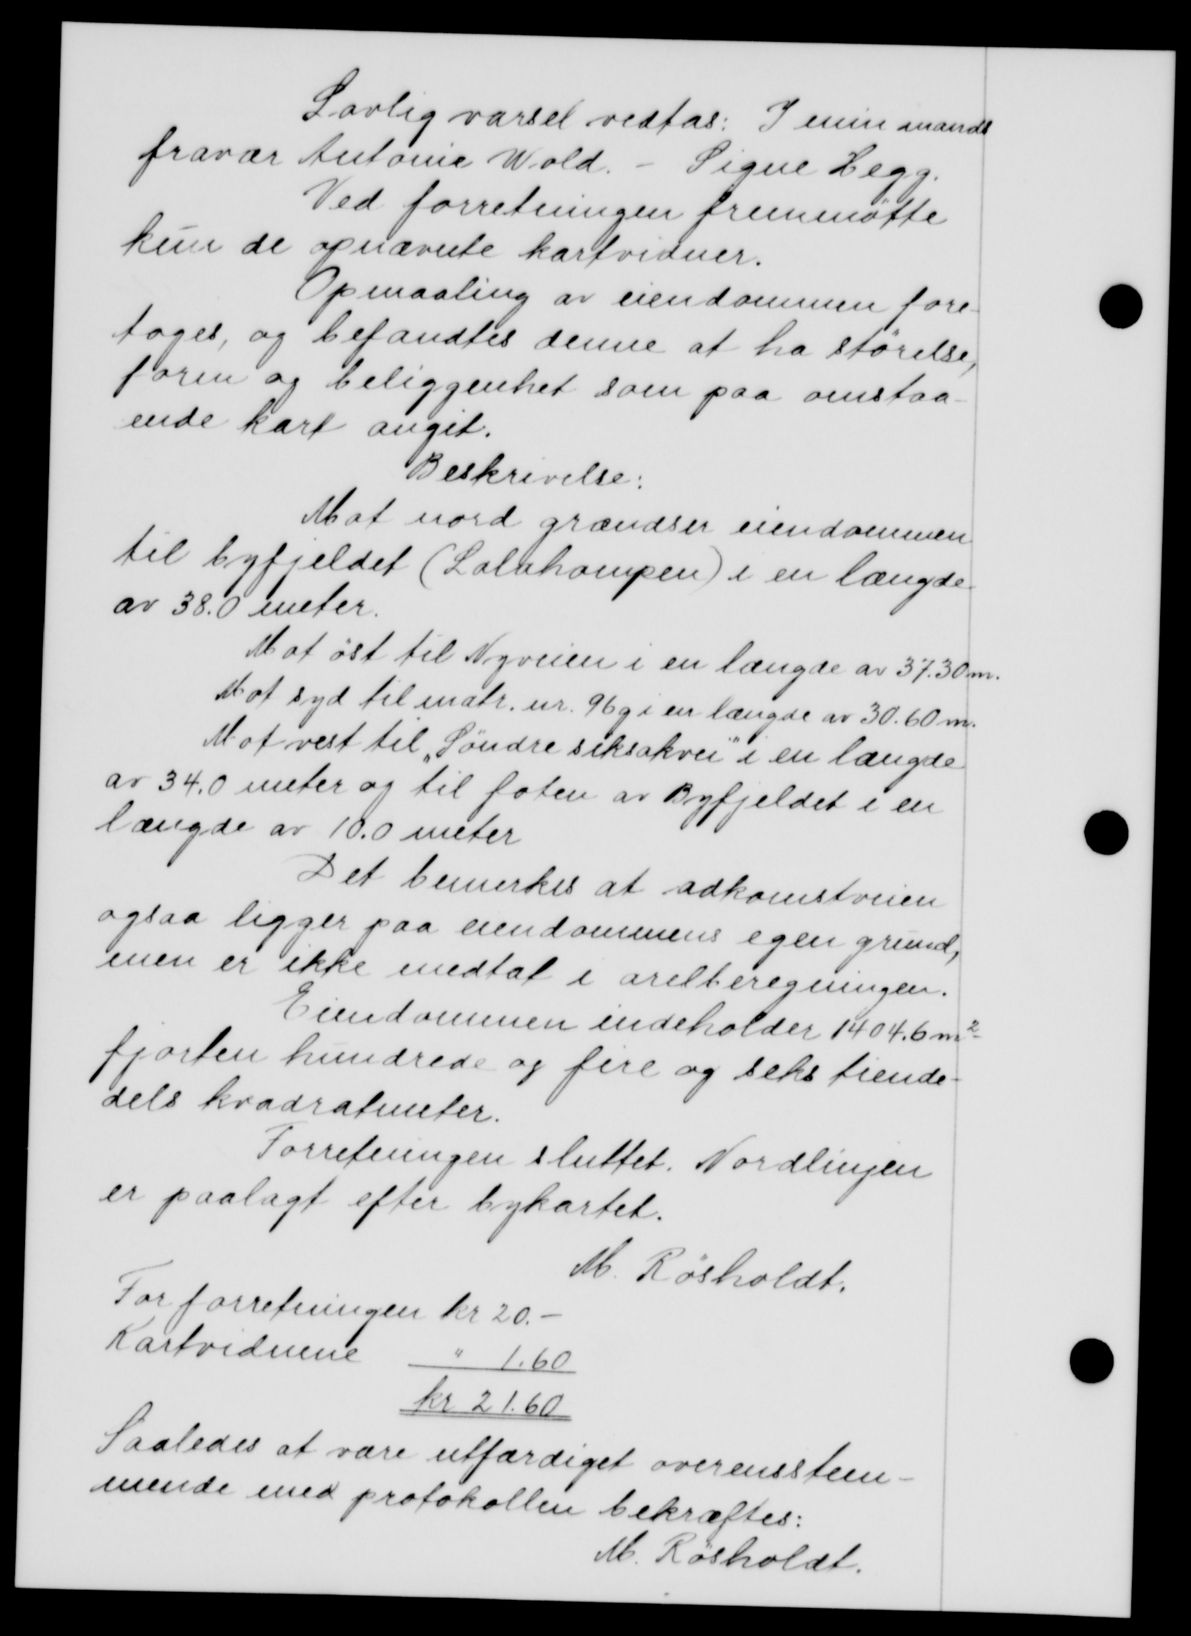 Lovlig varsel vedtas: I min mands
fravær Antonie Wold. – Signe Hegg.
Ved forretningen fremmötte
kun de opnævnte kartvidner.
Opmaaling av eiendommen fore-
toges, og befandtes denne at ha störelse,
form og beliggenhet som paa omstaa-
ende kart angit.
Beskrivelse:
Mot nord grændser eiendommen
til byfjeldet (Lolahompen) i en længde
av 38.0 meter.
Mot öst til Nyveien i en længde av 37.30 m.
Mot syd til matr. nr. 96g i en længde av 30.60 m.
Mot vest til „Söndre siksakvei" i en længde
av 34.0 meter og til foten av Byfjeldet i en
længde av 10.0 meter
Det bemerkes at adkomstveien
ogsaa ligger paa eiendommens egen grund,
men er ikke medtat i arelberegningen.
Eiendommen indeholder 1404.6 m²
fjorten hundrede og fire og seks tiende-
dels kvadratmeter.
Forretningen sluttet. Nordlinjen
er paalagt efter bykartet.
M. Rösholdt.
For forretningen kr 20.–
Kartvidnene " 1.60
kr 21.60
Saaledes at være utfærdiget overensstem-
mende med protokollen bekræftes:
M. Rösholdt.